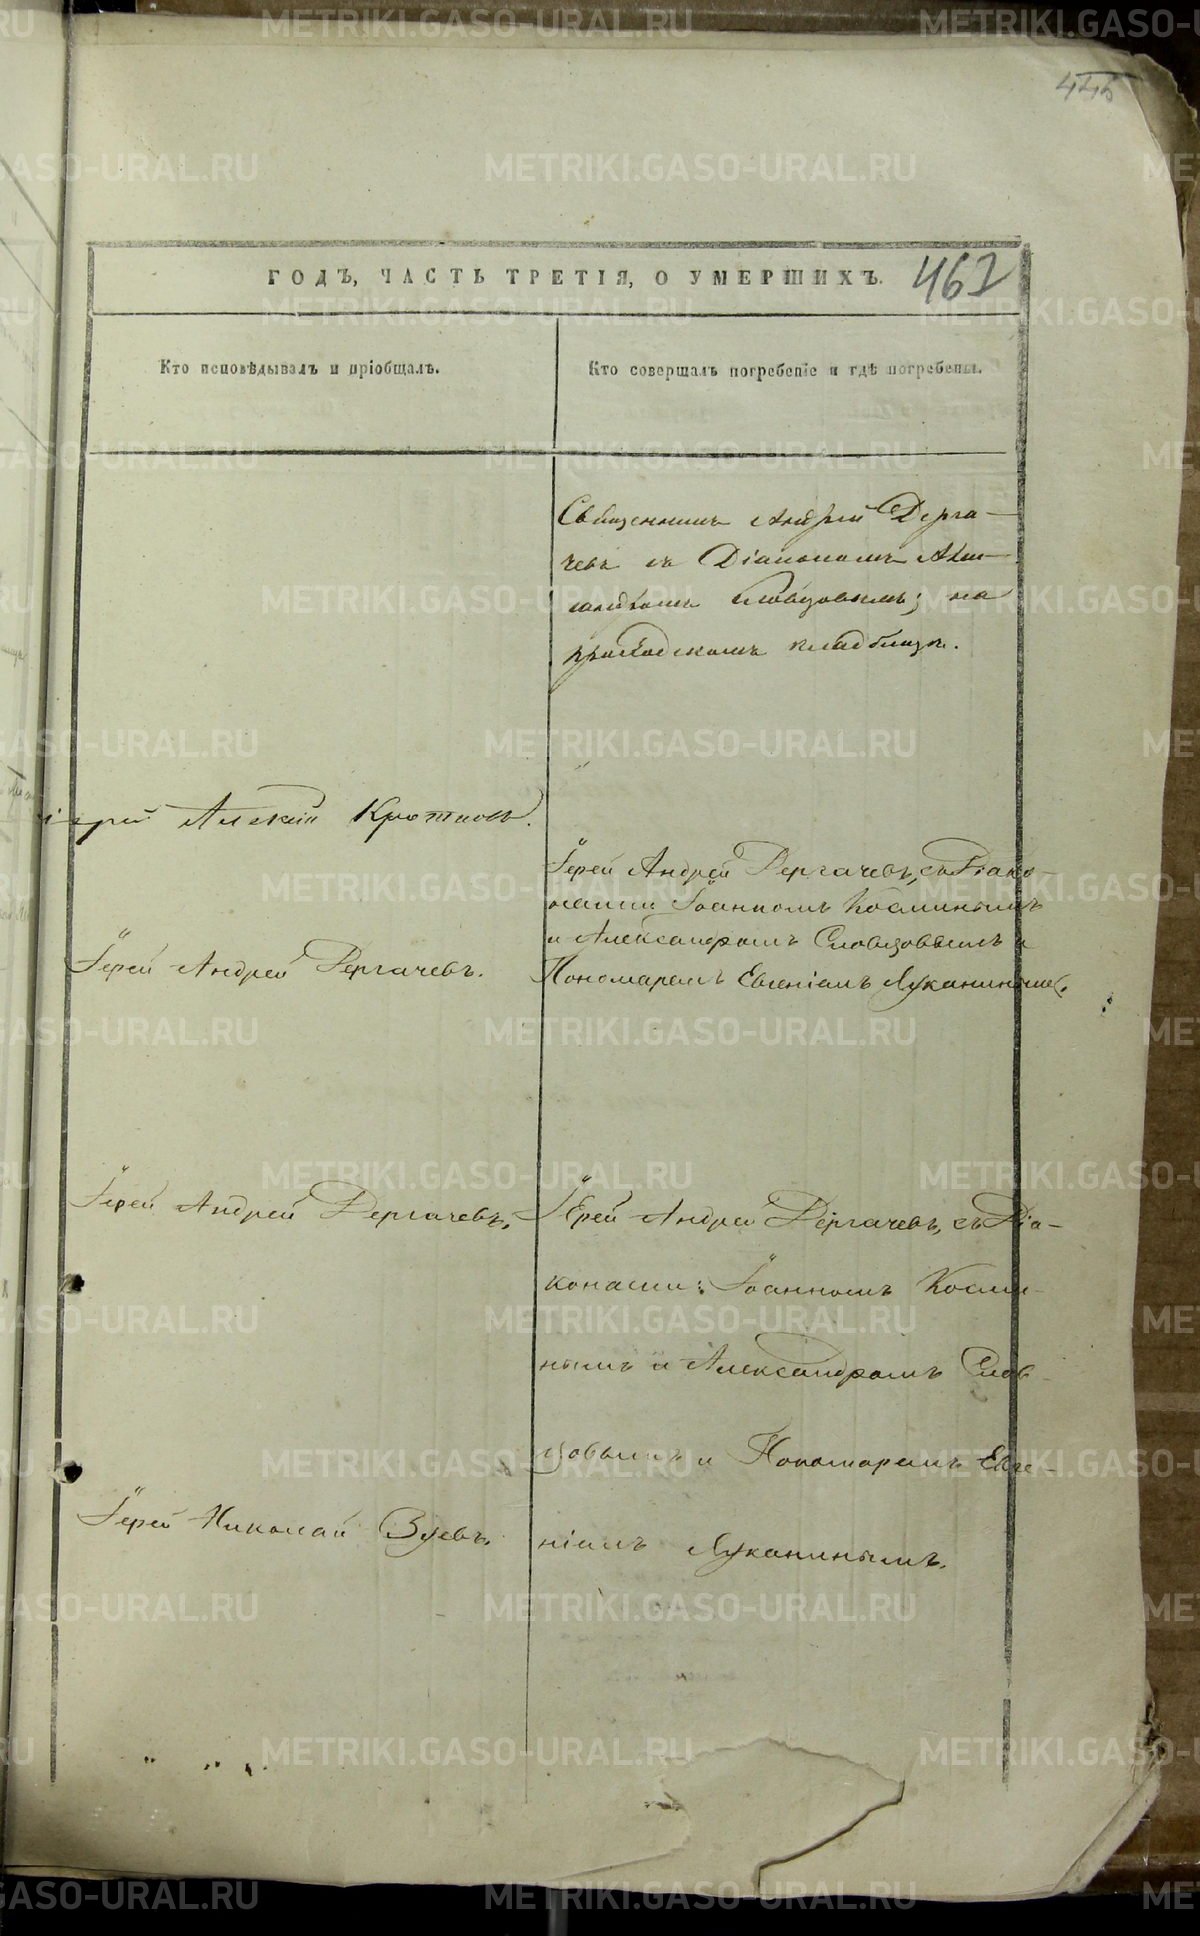 445
ГОДЪ, ЧАСТЬ ТРЕТІЯ, О УМЕРШИХЪ.
467
Кто исповѣдывалъ и пріобщалъ.
Кто совершалъ погребеніе и гдѣ погребены.
Священникъ Андрей Дерга-
чевъ съ Діакономъ Алек-
сандромъ Словцовымъ; на
приходскомъ кладбищѣ.
іерей Алексій Кротковъ.
Іерей Андрей Дергачевъ, съ Діако-
нами Іоанномъ Косминымъ
и Александромъ Словцовымъ и
Іерей Андрей Дергачевъ.
Пономаремъ Евгеніемъ Луканинымъ.
Іерей Андрей Дергачевъ.
Іерей Андрей Дергачевъ, съ Діа-
конами: Іоанномъ Косми-
нымъ и Александромъ Слов-
цовымъ и Пономаремъ Евге-
Іерей Николай Зуевъ.
ніемъ Луканинымъ.
METRIKI.GASO-URAL.RU